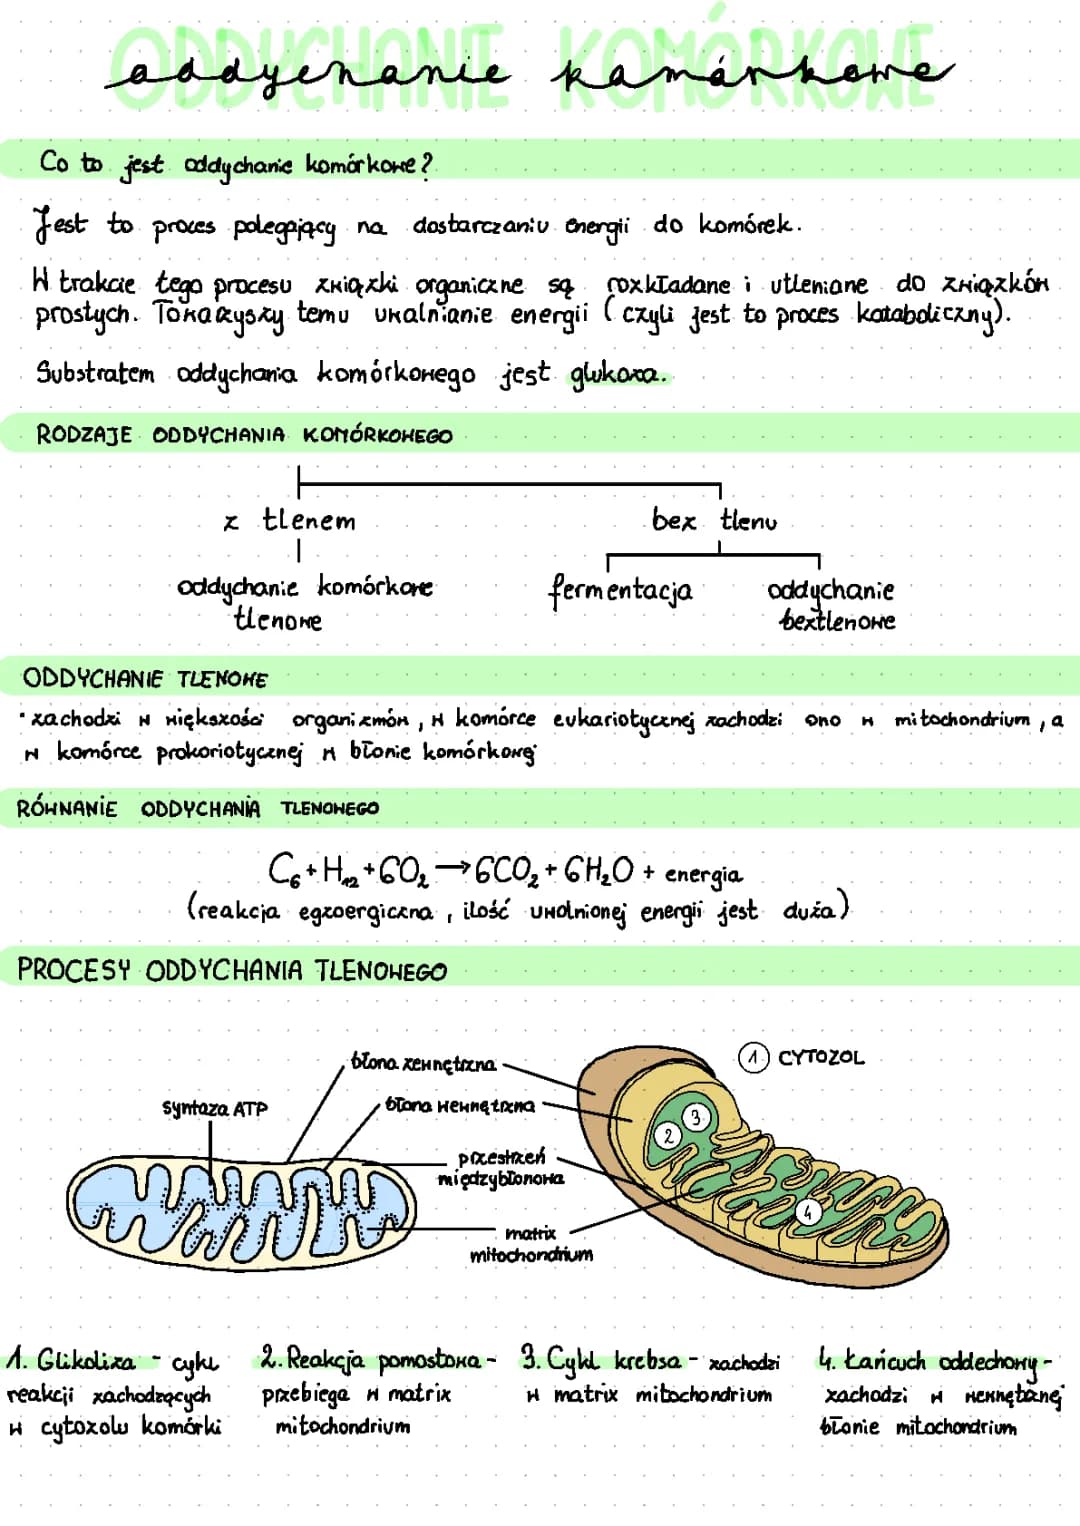 ODDYCHANIE KOMÓRKOWE
oddychanie komórkowe
Co to jest oddychanie komórkowe?
Jest to proces polegający na dostarczaniu energii do komórek.
W trakcie tego procesu związki organiczne są rozkładane i utleniane do związków
prostych. Towarzyszy temu uwalnianie energii (czyli jest to proces kataboliczny).
Substratem oddychania komórkowego jest glukoza.
RODZAJE ODDYCHANIA KOMÓRKOWEGO
z tlenem
bez tlenu
oddychanie komórkowe
tlenowe
fermentacja
oddychanie
beztlenowe
ODDYCHANIE TLENOWE
• zachodzi w większości organizmów, w komórce eukariotycznej zachodzi ono w mitochondrium, a
w komórce prokariotycznej w błonie komórkowej
RÓWNANIE ODDYCHANIA TLENOWEGO
C₆+H₁₂+6O₂→6CO₂+6H₂O + energia
(reakcja egzoergiczna, ilość uwolnionej energii jest duża)
PROCESY ODDYCHANIA TLENOWEGO
błona zewnętrzna
1 CYTOZOL
syntaza ATP
błona wewnętrzna
3
2
przestrzeń
międzybłonowa
4
matrix
mitochondrium
1. Glikoliza - cykl
reakcji zachodzących
w cytozolu komórki
2. Reakcja pomostowa -
przebiega w matrix
mitochondrium
3. Cykl krebsa - zachodzi
w matrix mitochondrium
4. Łańcuch oddechowy -
zachodzi w wewnętrznej
błonie mitochondrium